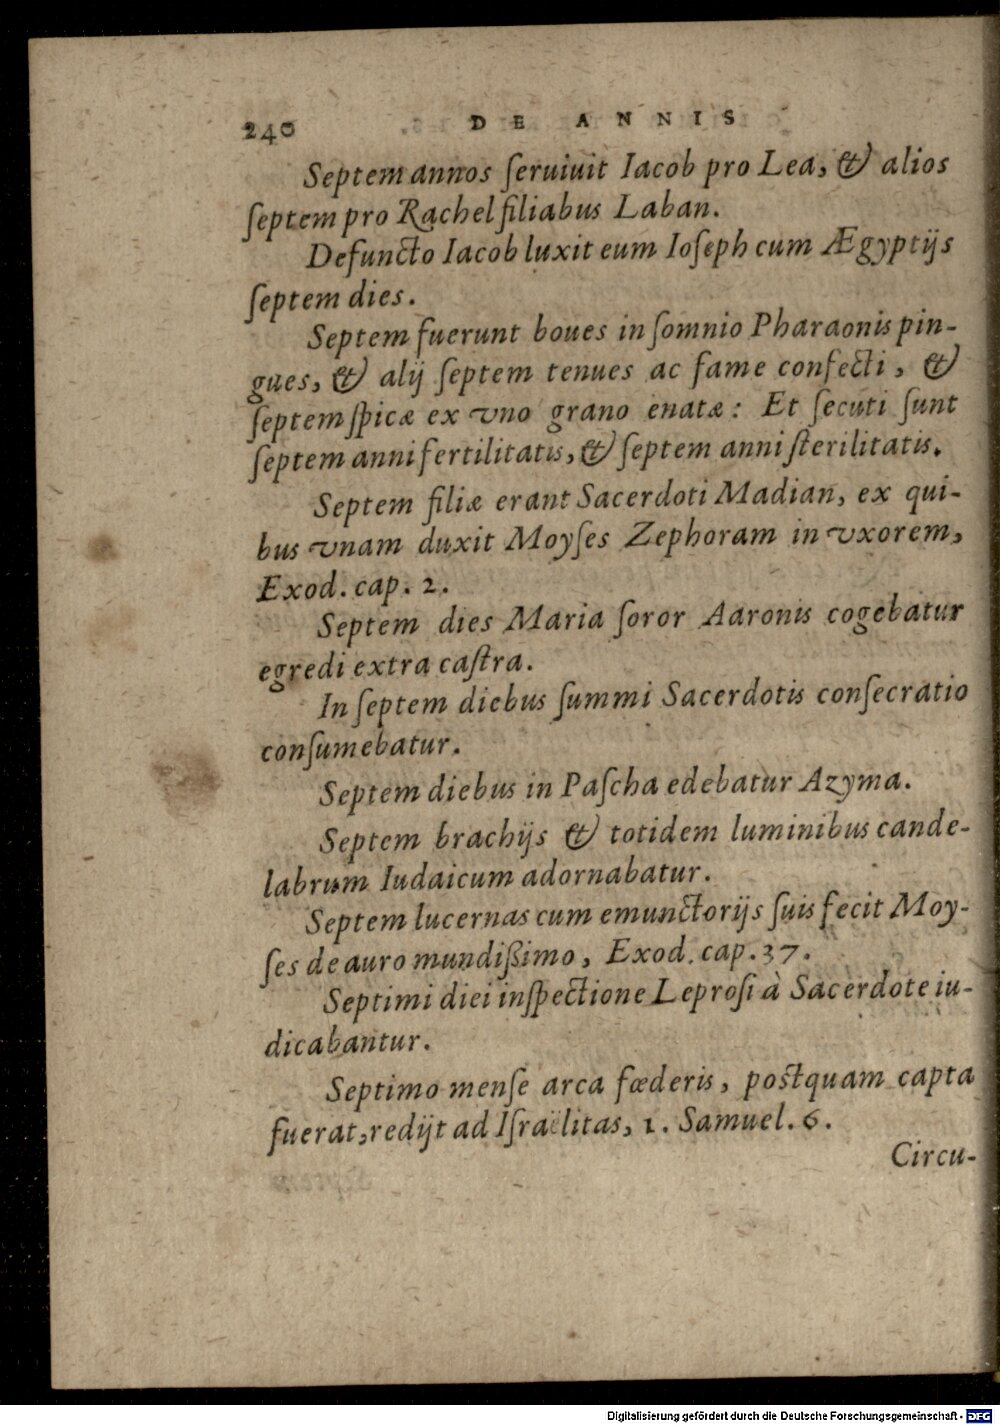 240 DE ANNIS
Septem annos ſeruiuit Iacob pro Lea, & alios
ſeptem pro Rachel filiabus Laban.
Defuncto Iacob luxit eum Ioſeph cum Ægyptijs
ſeptem dies.
Septem fuerunt boues in ſomnio Pharaonis pin-
gues, & alij ſeptem tenues ac fame confecti, &
ſeptem ſpicæ ex vno grano enatæ: Et ſecuti ſunt
ſeptem anni fertilitatis, & ſeptem anni ſterilitatis.
Septem filiæ erant Sacerdoti Madian, ex qui-
bus vnam duxit Moyſes Zephoram in vxorem,
Exod. cap. 2.
Septem dies Maria ſoror Aaronis cogebatur
egredi extra caſtra.
In ſeptem diebus ſummi Sacerdotis conſecratio
conſumebatur.
Septem diebus in Paſcha edebatur Azyma.
Septem brachijs & totidem luminibus cande-
labrum Iudaicum adornabatur.
Septem lucernas cum emunctorijs ſuis fecit Moy-
ſes de auro mundiſſimo, Exod. cap. 37.
Septimi diei inſpectione Leproſi à Sacerdote iu-
dicabantur.
Septimo menſe arca fœderis, postquam capta
fuerat, redijt ad Iſraëlitas, 1. Samuel. 6.
Circu-
Digitalisierung gefördert durch die Deutsche Forschungsgemeinschaft - DFG